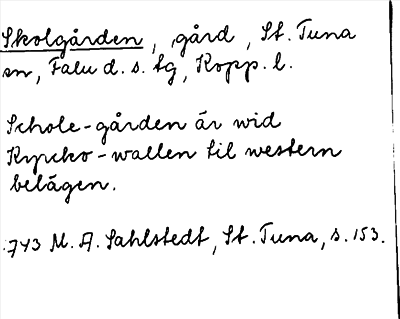 Skolgården, gård, St. Tuna
sn, Falu d. s. tg, Kopp. l.
Schole-gården är wid
Kyrcko-wallen til western
belägen.
1743 M. A. Sahlstedt, St. Tuna, s. 153.